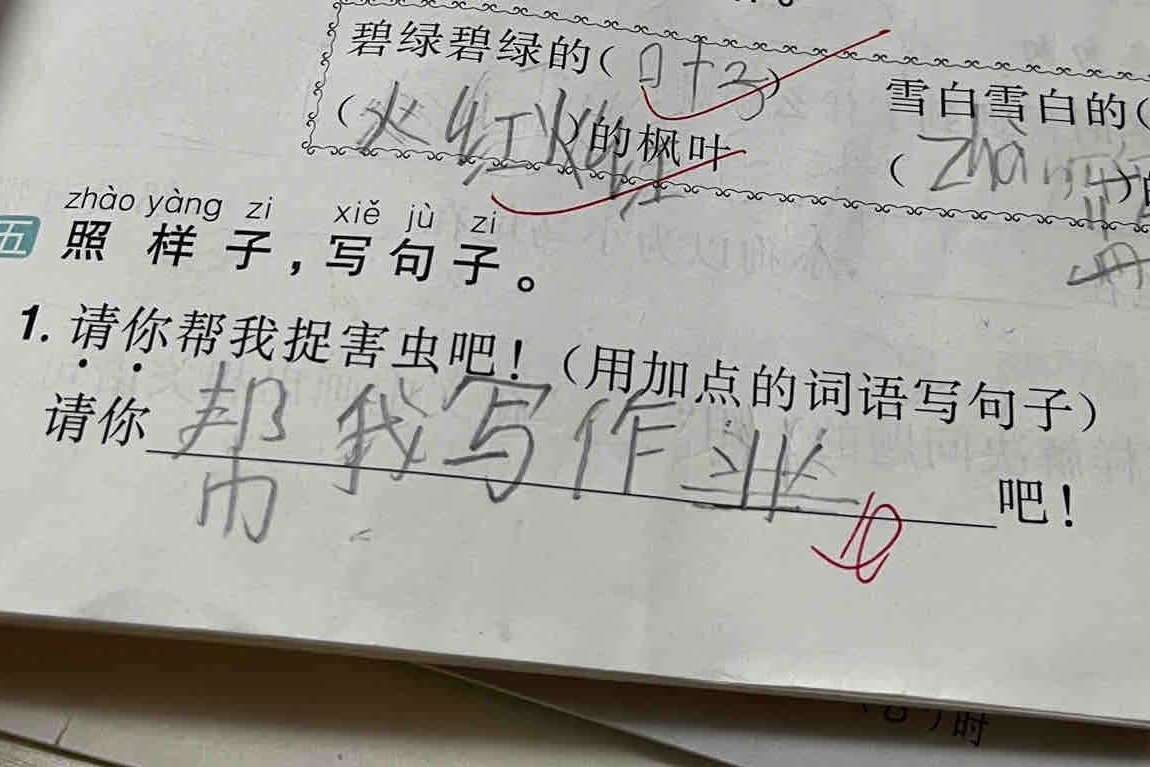 碧绿碧绿的(叶子)
雪白雪白的(
(火红火红)的枫叶
(
zhào yàng zi xiě jù zi
五 照样子，写句子。
1. 请你帮我捉害虫吧！（用加点的词语写句子）
请你帮我写作业吧！
)时